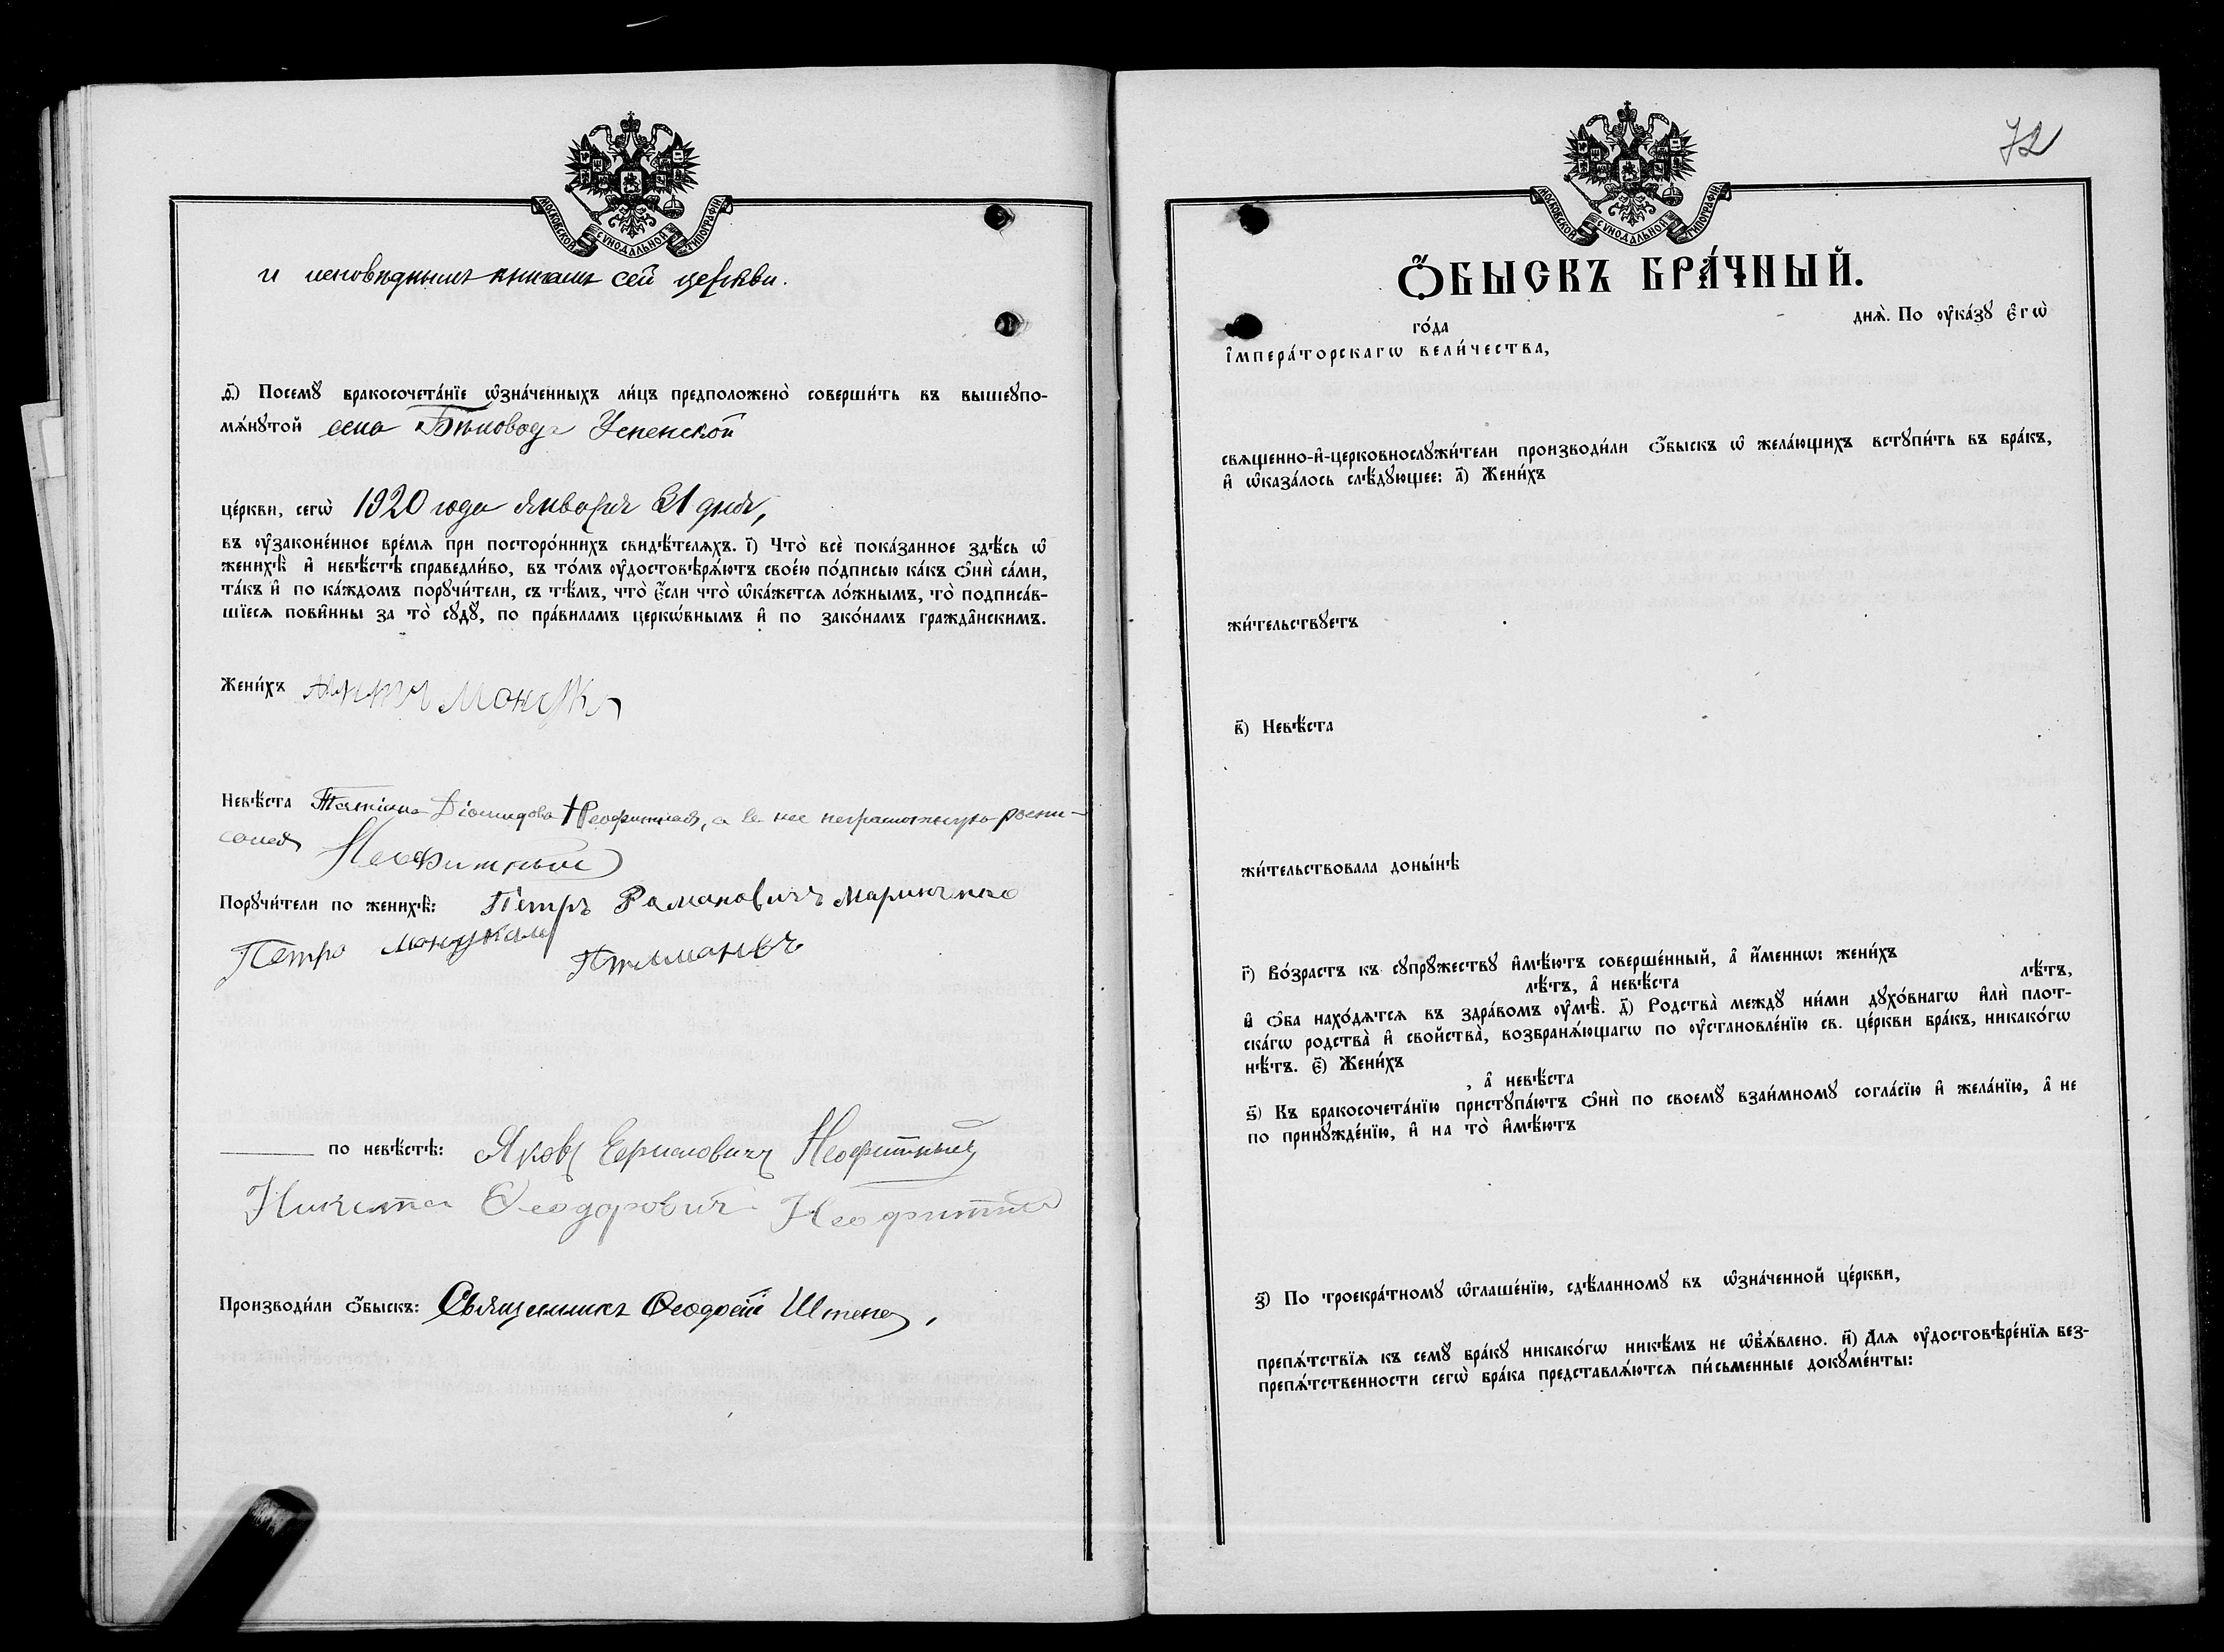 МОСКОВСКОЙ СѴНОДАЛЬНОЙ ТИПОГРАФІИ
и исповѣднымъ книгамъ сей церкви.
ѳ҃) Посемꙋ̀ бракосочета́нїе ѡ҆зна́ченныхъ ли́цъ предположено̀ соверши́ть въ вышеꙋпо-
мѧ́нꙋтой села Бѣловода Успенской
це́ркви, сегѡ̀ 1920 года Января 31 дня,
въ ᲂу҆законе́нное вре́мѧ при посторо́ннихъ свидѣ́телѧхъ. і҃) Что̀ всѐ пока́занное здѣ́сь ѡ҆
женихѣ̀ и҆ невѣ́стѣ справедли́во, въ то́мъ ᲂу҆достовѣрѧ́ютъ свое́ю по́дписью ка́къ ѻ҆нѝ са́ми,
та́къ и҆ по ка́ждомъ порꙋчи́тели, съ тѣ́мъ, что̀ є҆́сли что̀ ѡ҆ка́жетсѧ ло́жнымъ, то̀ подписа́в-
шїесѧ пови́нны за то̀ сꙋдꙋ̀, по пра́виламъ церкѡ́внымъ и҆ по зако́намъ гражда̑нскимъ.
Жени́хъ
Невѣ́ста Татіана Діомидова Неофитная, а за нее неграмотную роспи-
сался Неофитный
Порꙋчи́тели по женихѣ̀: Петръ Романовичъ Маринченко
Петро
по невѣ́стѣ: Яковъ Ефимовичъ Неофитный
Никита Ѳеодоровичъ
Производи́ли ѻ҆́быскъ: Священникъ Ѳеодосій
72
МОСКОВСКОЙ СѴНОДАЛЬНОЙ ТИПОГРАФІИ
Ѻ҆́БЫСКЪ БРА́ЧНЫЙ.
го́да днѧ̀. По ᲂу҆ка́зꙋ Є҆гѡ̀
І҆мпера́торскагѡ вели́чества,
свѧщенно-и҆-церковнослꙋжи́тели производи́ли ѻ҆́быскъ ѡ҆ жела́ющихъ встꙋпи́ть въ бра́къ,
и҆ ѡ҆каза́лось слѣ́дꙋющее: а҃) Жени́хъ
жи́тельствꙋетъ
в҃) Невѣ́ста
жи́тельствовала доны́нѣ
г҃) Во́зрастъ къ сꙋпрꙋ́жествꙋ и҆мѣ́ютъ соверше́нный, а҆ и҆́меннѡ: жени́хъ
лѣ́тъ, а҆ невѣ́ста лѣ́тъ,
и҆ ѻ҆́ба нахо́дѧтсѧ въ здра́вомъ ᲂу҆мѣ̀. д҃) Родства̀ междꙋ̀ ни́ми дꙋхо́внагѡ и҆лѝ плот-
ска́гѡ родства̀ и҆ свойства̀, возбранѧ́ющагѡ по ᲂу҆становле́нїю св. це́ркви бра́къ, никако́гѡ
нѣ́тъ. є҃) Жени́хъ
, а҆ невѣ́ста
ѕ҃) Къ бракосочета́нїю пристꙋпа́ютъ ѻ҆нѝ по своемꙋ̀ взаи́мномꙋ согла́сїю и҆ жела́нїю, а҆ не
по принꙋжде́нїю, и҆ на то̀ и҆мѣ́ютъ
з҃) По троекра́тномꙋ ѡ҆глаше́нїю, сдѣ́ланномꙋ въ ѡ҆зна́ченной це́ркви,
препѧ́тствїѧ къ семꙋ̀ бра́кꙋ никако́гѡ никѣ́мъ не ѡ҆б̾ѧ́влено. и҃) Длѧ ᲂу҆достовѣре́нїѧ без-
препѧ́тственности сегѡ̀ бра́ка представлѧ́ютсѧ пи́сьменные докꙋме́нты: